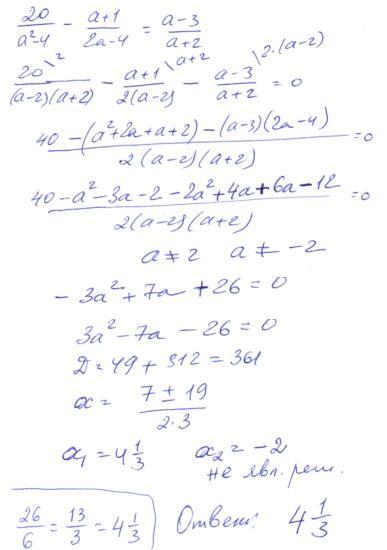 20/(a²-4) - (a+1)/(2a-4) = (a-3)/(a+2)
20\2/((a-2)(a+2)) - (a+1)\a+2/(2(a-2)) - (a-3)\2·(a-2)/(a+2) = 0
(40-(a²+2a+a+2)-(a-3)(2a-4))/(2(a-2)(a+2)) = 0
(40-a²-3a-2-2a²+4a+6a-12)/(2(a-2)(a+2)) = 0
a≠2 a≠-2
-3a²+7a+26=0
3a²-7a-26=0
D=49+312=361
a= (7±19)/(2·3)
a₁=4 1/3 a₂=-2
не явл. реш.
26/6 = 13/3 = 4 1/3 Ответ: 4 1/3